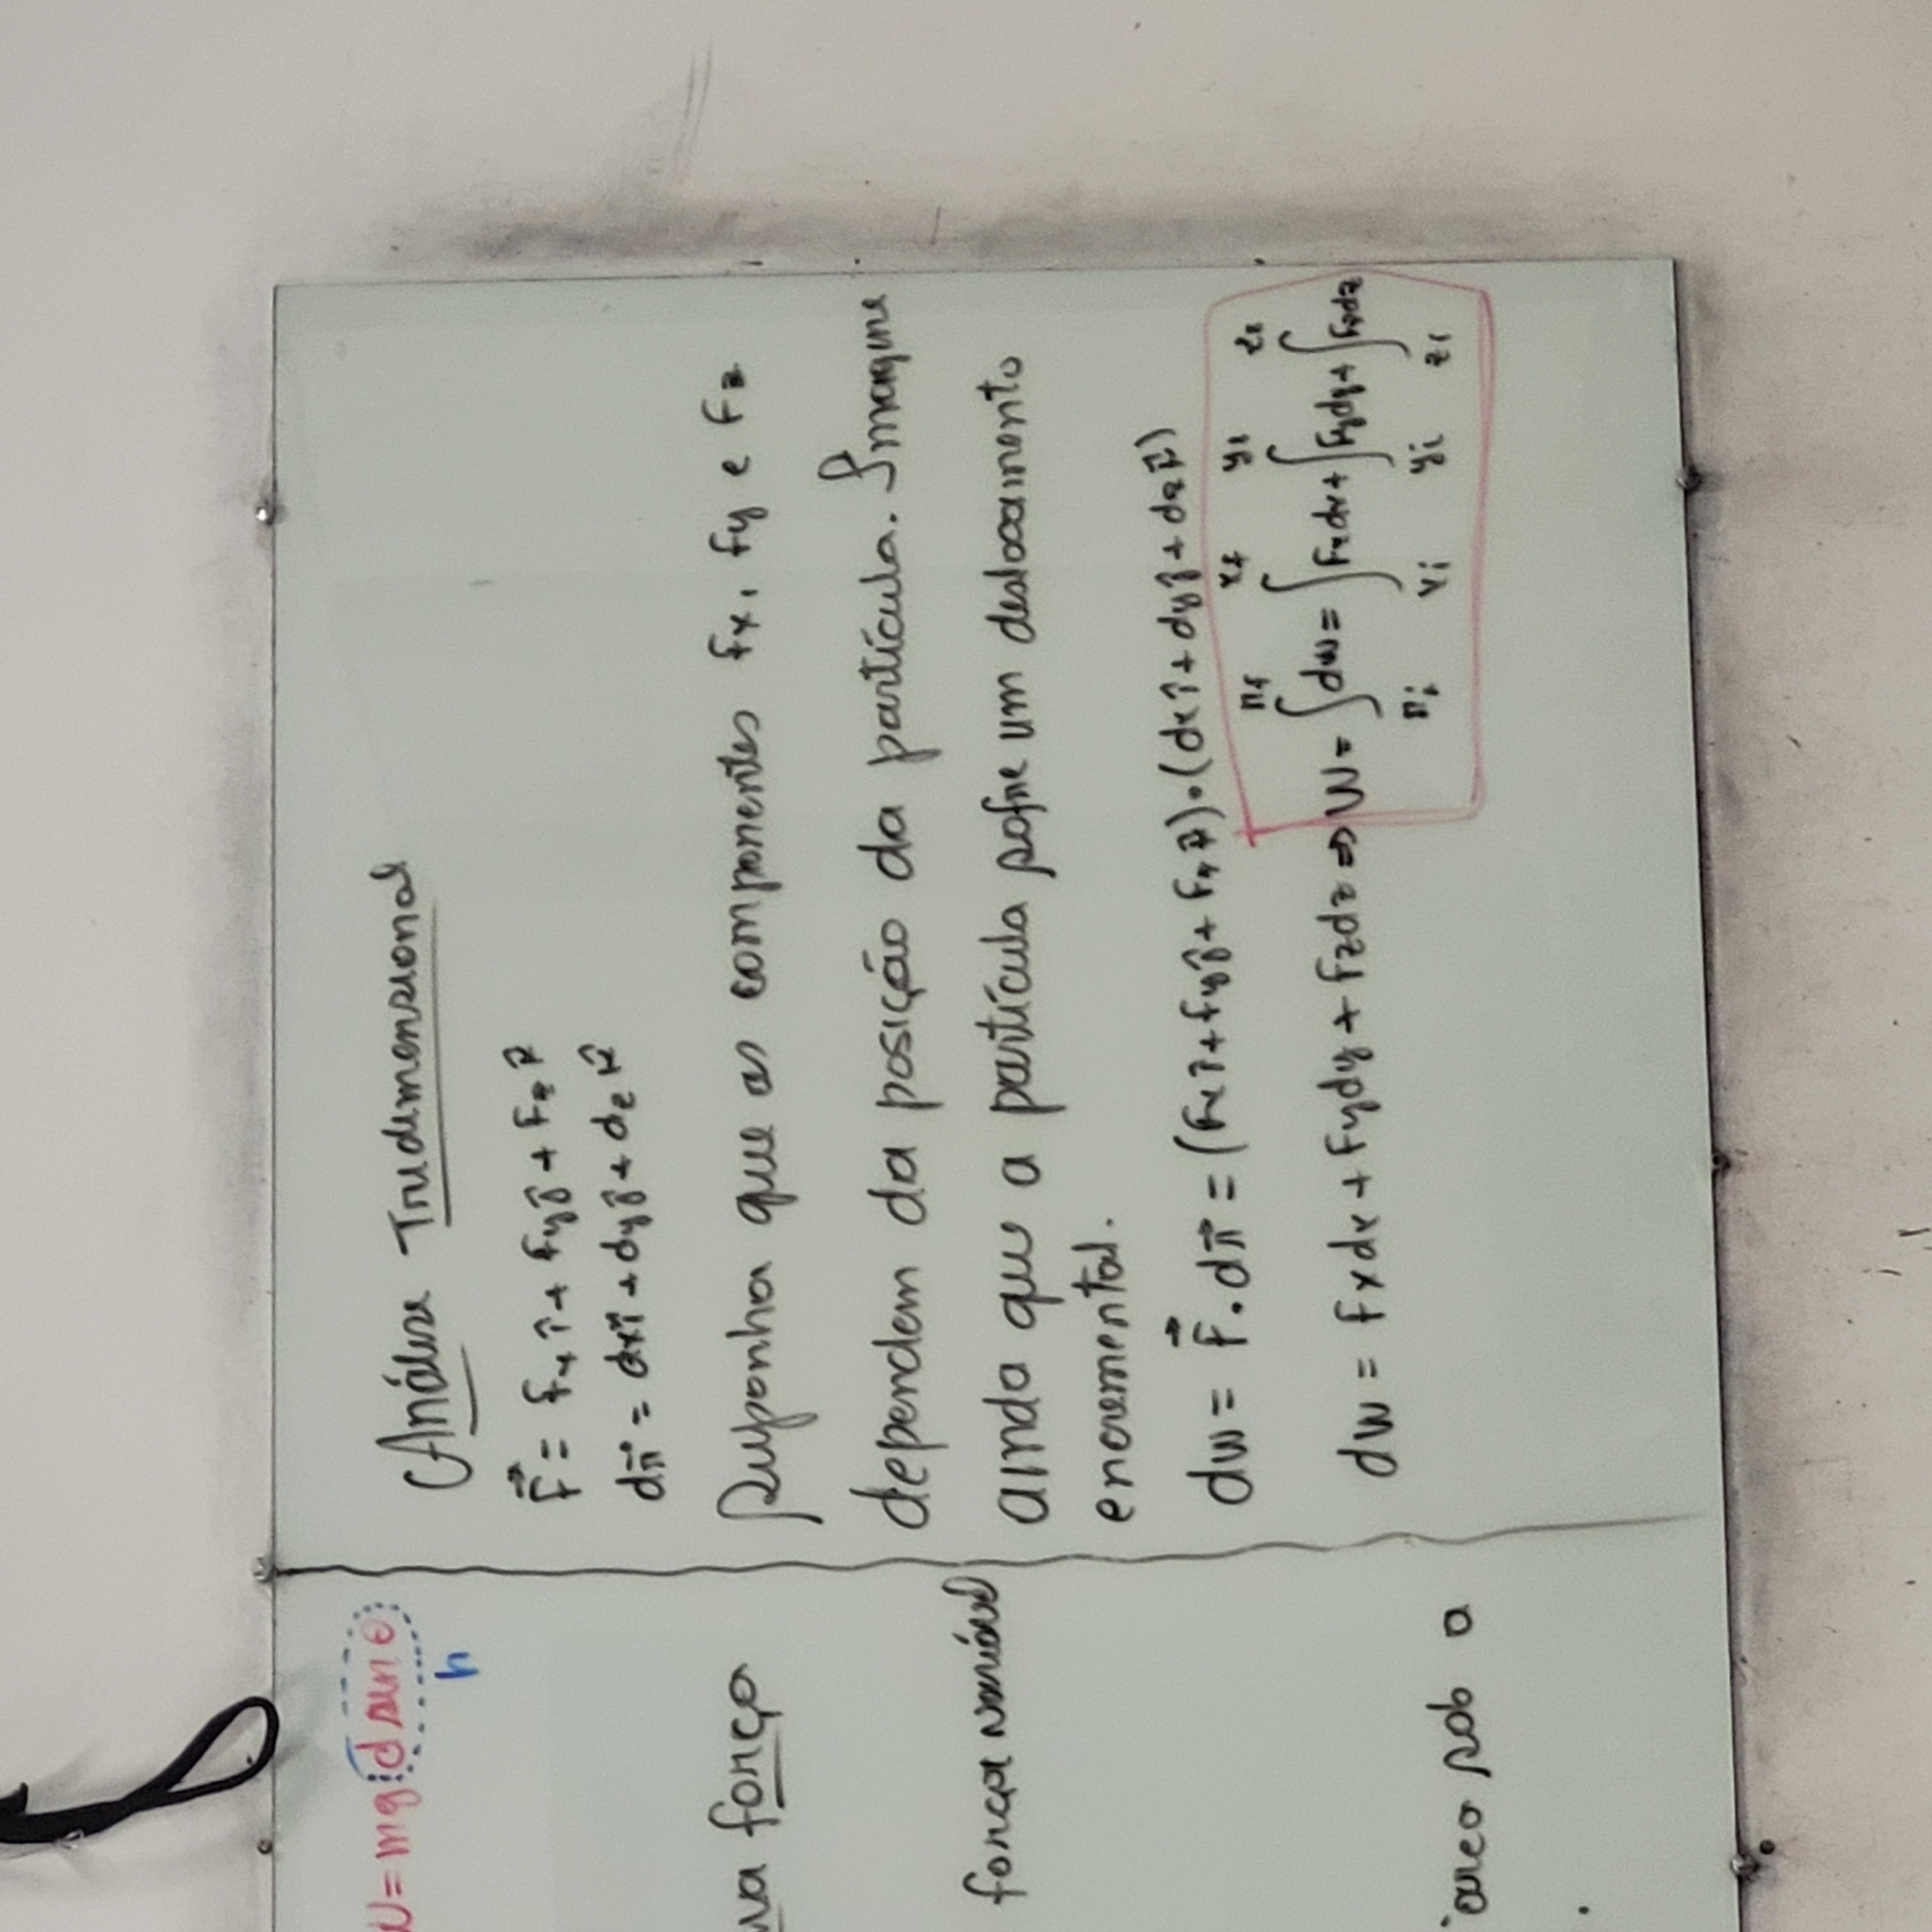 W = mg d sen θ
h
uma força
força variável
sob a
Análise Tridimensional
F⃗ = Fx î + Fy ĵ + Fz k̂
dr⃗ = dx î + dy ĵ + dz k̂
Suponha que as componentes Fx, Fy e Fz
dependem da posição da partícula. Imagine
ainda que a partícula sofre um deslocamento
encremental.
dW = F⃗ . dr⃗ = (Fx î + Fy ĵ + Fz k̂) . (dx î + dy ĵ + dz k̂)
dW = Fxdx + Fydy + Fzdz ⇒ W = ∫_{ri}^{rf} dW = ∫_{xi}^{xf} Fxdx + ∫_{yi}^{yf} Fydy + ∫_{zi}^{zf} Fzdz